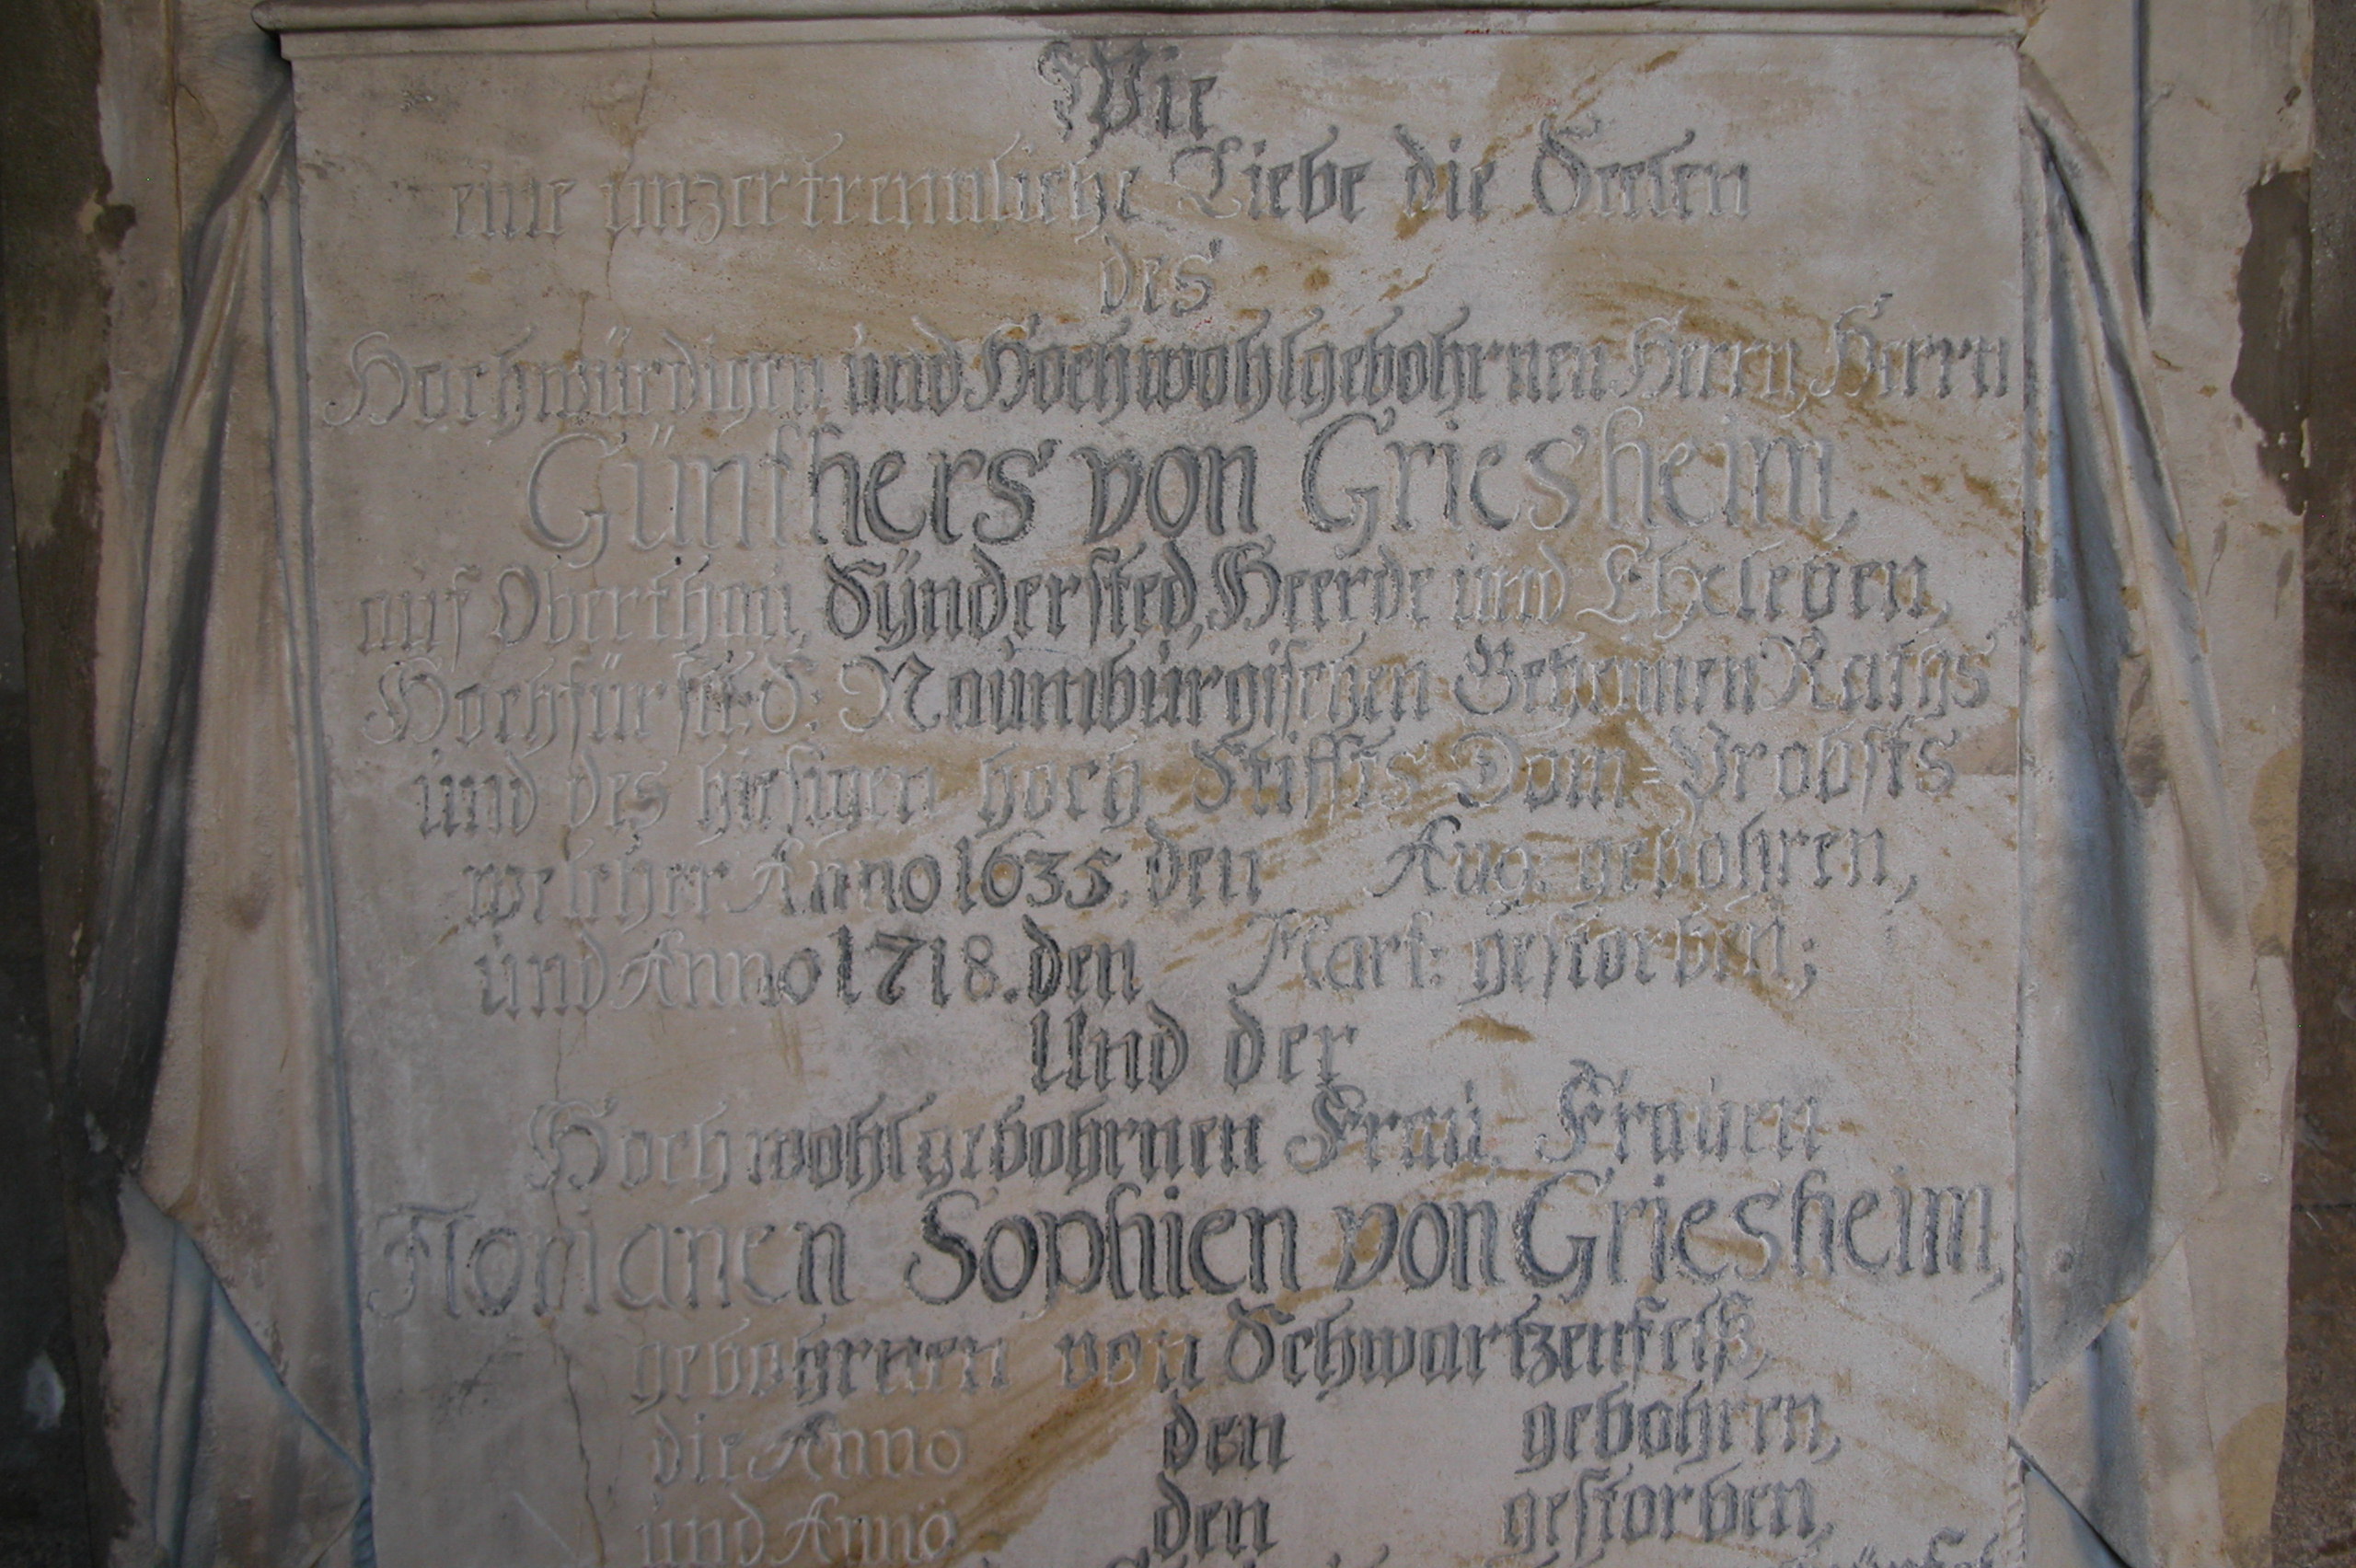 Wie
eine unzertrennliche Liebe die Seelen
des
Hochwürdigen und Hochwohlgebohrnen Herrn, Herrn
Günthers von Griesheim,
auf Oberthau, Sÿndersted, Heerde und Ehxleben,
Hochfürstl: S: Naumburgischen Geheimen Raths
und des hiesigen hoch Stiffts Dom-Probsts
welcher Anno 1635. den Aug: gebohren,
und Anno 1718. den Mart: gestorben;
Und der
Hochwohlgebohrnen Frau, Frauen
Florianen Sophien von Griesheim,
gebohrnen von Schwartzenfelß,
die Anno den gebohren,
und Anno den gestorben,